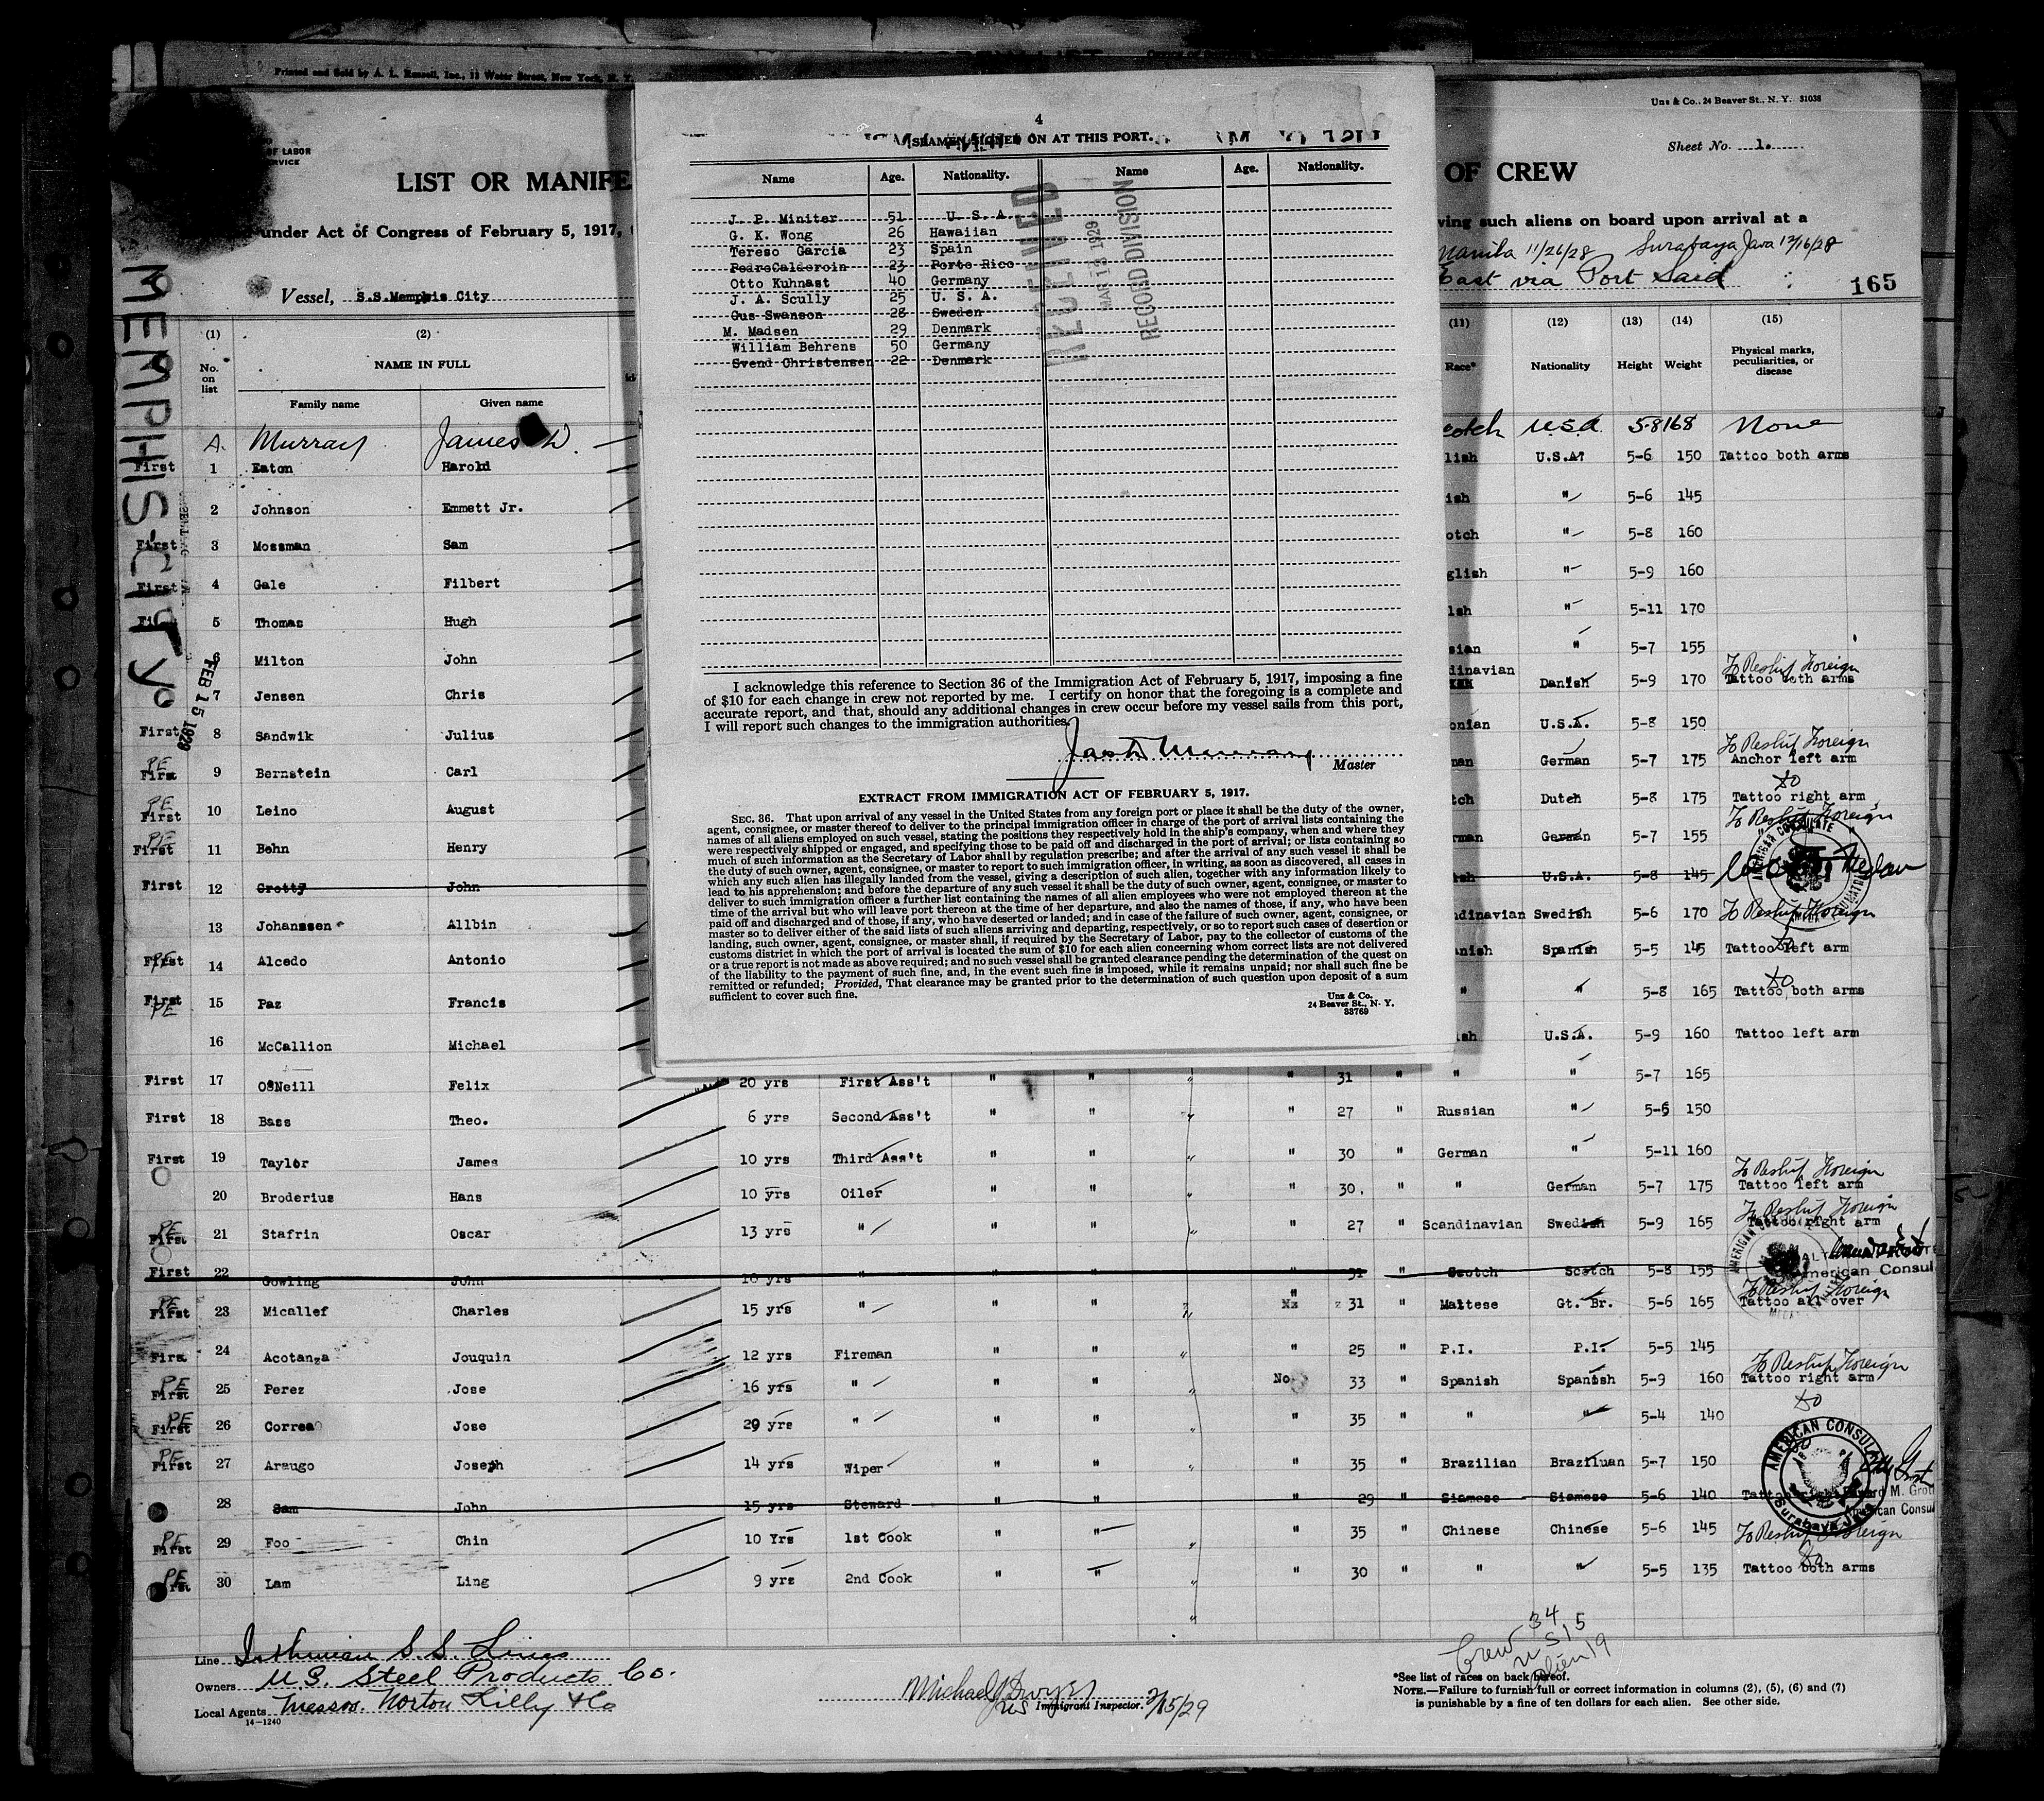 Printed and Sold by A. L. Russell, Inc., 13 Water Street, New York, N. Y.
Uns & Co., 24 Beaver St., N. Y. 31038
OF LABOR
SERVICE
Sheet No. 1.
LIST OR MANIFE
OF CREW
under Act of Congress of February 5, 1917,
ving such aliens on board upon arrival at a
Manila 11/26/28 Surabaya Java 12/16/28
East via Port Said
165
Vessel, S.S.Memphis City
MEMPHIS-CITY
FEB 15 1929
4
SEAMEN SIGNED ON AT THIS PORT.
Name Age. Nationality. Name Age. Nationality.
J. P. Miniter 51 U. S. A.
G. K. Wong 26 Hawaiian
Tereso Garcia 23 Spain
PedroCalderoin 23 Porto Rico
Otto Kuhnast 40 Germany
J. A. Scully 25 U. S. A.
Gus Swanson 28 Sweden
M. Madsen 29 Denmark
William Behrens 50 Germany
Svend Christensen 22 Denmark
RECEIVED
MAR 13 1929
RECORD DIVISION
I acknowledge this reference to Section 36 of the Immigration Act of February 5, 1917, imposing a fine
of $10 for each change in crew not reported by me. I certify on honor that the foregoing is a complete and
accurate report, and that, should any additional changes in crew occur before my vessel sails from this port,
I will report such changes to the immigration authorities.
Jas D Murray
Master
EXTRACT FROM IMMIGRATION ACT OF FEBRUARY 5, 1917.
SEC. 36. That upon arrival of any vessel in the United States from any foreign port or place it shall be the duty of the owner,
agent, consignee, or master thereof to deliver to the principal immigration officer in charge of the port of arrival lists containing the
names of all aliens employed on such vessel, stating the positions they respectively hold in the ship's company, when and where they
were respectively shipped or engaged, and specifying those to be paid off and discharged in the port of arrival; or lists containing so
much of such information as the Secretary of Labor shall by regulation prescribe; and after the arrival of any such vessel it shall be
the duty of such owner, agent, consignee, or master to report to such immigration officer, in writing, as soon as discovered, all cases in
which any such alien has illegally landed from the vessel, giving a description of such alien, together with any information likely to
lead to his apprehension; and before the departure of any such vessel it shall be the duty of such owner, agent, consignee, or master to
deliver to such immigration officer a further list containing the names of all alien employees who were not employed thereon at the
time of the arrival but who will leave port thereon at the time of her departure, and also the names of those, if any, who have been
paid off and discharged and of those, if any, who have deserted or landed; and in case of the failure of such owner, agent, consignee, or
master so to deliver either of the said lists of such aliens arriving and departing, respectively, or so to report such cases of desertion or
landing, such owner, agent, consignee, or master shall, if required by the Secretary of Labor, pay to the collector of customs of the
customs district in which the port of arrival is located the sum of $10 for each alien concerning whom correct lists are not delivered
or a true report is not made as above required; and no such vessel shall be granted clearance pending the determination of the quest on
of the liability to the payment of such fine, and, in the event such fine is imposed, while it remains unpaid; nor shall such fine be
remitted or refunded; Provided, That clearance may be granted prior to the determination of such question upon deposit of a sum
sufficient to cover such fine.
Uns & Co.
24 Beaver St., N. Y.
33769
(1) (2) (11) (12) (13) (14) (15)
No. on list NAME IN FULL Race* Nationality Height Weight Physical marks, peculiarities, or disease
Family name Given name
A. Murray James D. otch U.S.A. 5-8 168 None
First 1 Eaton Harold lish U.S.A. 5-6 150 Tattoo both arms
2 Johnson Emmett Jr. ish " 5-6 145
First 3 Mossman Sam otch " 5-8 160
First 4 Gale Filbert glish " 5-9 160
Fi 5 Thomas Hugh lsh " 5-11 170
6 Milton John sian " 5-7 155
7 Jensen Chris dinavian Danish 5-9 170 To Reship Foreign Tattoo both arms
First 8 Sandwik Julius onian U.S.A. 5-8 150
PE First 9 Bernstein Carl man German 5-7 175 To Reship Foreign Anchor left arm
PE First 10 Leino August tch Dutch 5-8 175 do Tattoo right arm
PE First 11 Bohn Henry rman German 5-7 155 To Reship Foreign
First 12 Crotty John ish U.S.A. 5-8 145
AMERICAN CONSULATE
13 Johanssen Allbin ndinavian Swedish 5-6 170 To Reship Foreign
PE First 14 Alcedo Antonio anish Spanish 5-5 145 do Tattoo left arm
First PE 15 Paz Francis " " 5-8 165 do Tattoo both arms
16 McCallion Michael ish U.S.A. 5-9 160 Tattoo left arm
First 17 O'Neill Felix 20 yrs First Ass't " " " " 31 " " " 5-7 165
First 18 Bass Theo. 6 yrs Second Ass't " " " " 27 " Russian " 5-6 150
First 19 Taylor James 10 yrs Third Ass't " " " " 30 " German " 5-11 160
20 Broderius Hans 10 yrs Oiler " " " " 30. " " German 5-7 175 To Reship Foreign Tattoo left arm
PE First 21 Stafrin Oscar 13 yrs " " " " " 27 " Scandinavian Swedish 5-9 165 To Reship Foreign Tattoo right arm
First 22 Gowling John 10 yrs " " " " 31 " Scotch Scotch 5-8 155
American Consul
PE First 23 Micallef Charles 15 yrs " " " " " 31 " Maltese Gt. Br. 5-6 165 To Reship Foreign Tattoo all over
First 24 Acotanza Jouquin 12 yrs Fireman " " " " 25 " P.I. P.I. 5-5 145
PE First 25 Perez Jose 16 yrs " " " " No 33 " Spanish Spanish 5-9 160 To Reship Foreign Tattoo right arm
PE First 26 Correa Jose 29 yrs " " " " " 35 " " " 5-4 140 do
PE First 27 Araugo Joseph 14 yrs Wiper " " " " 35 " Brazilian Braziluan 5-7 150
28 Sam John 15 yrs Steward " " " 29 Siamese Siamese 5-6 140
AMERICAN CONSUL Surabaya Java
Edward M. Grot
American Consul
PE First 29 Foo Chin 10 Yrs 1st Cook " " " " 35 " Chinese Chinese 5-6 145 To Reship Foreign
PE First 30 Lam Ling 9 yrs 2nd Cook " " " " 30 " " " 5-5 135 do Tattoo both arms
Crew 34
US 15
Alien 19
Line Isthmian S. S. Lines
Owners U.S. Steel Products Co.
Local Agents Messrs. Norton Lilly & Co
14-1240
Michael J Dwyer
US Immigrant Inspector. 2/15/29
*See list of races on back hereof.
NOTE.—Failure to furnish full or correct information in columns (2), (5), (6) and (7)
is punishable by a fine of ten dollars for each alien. See other side.